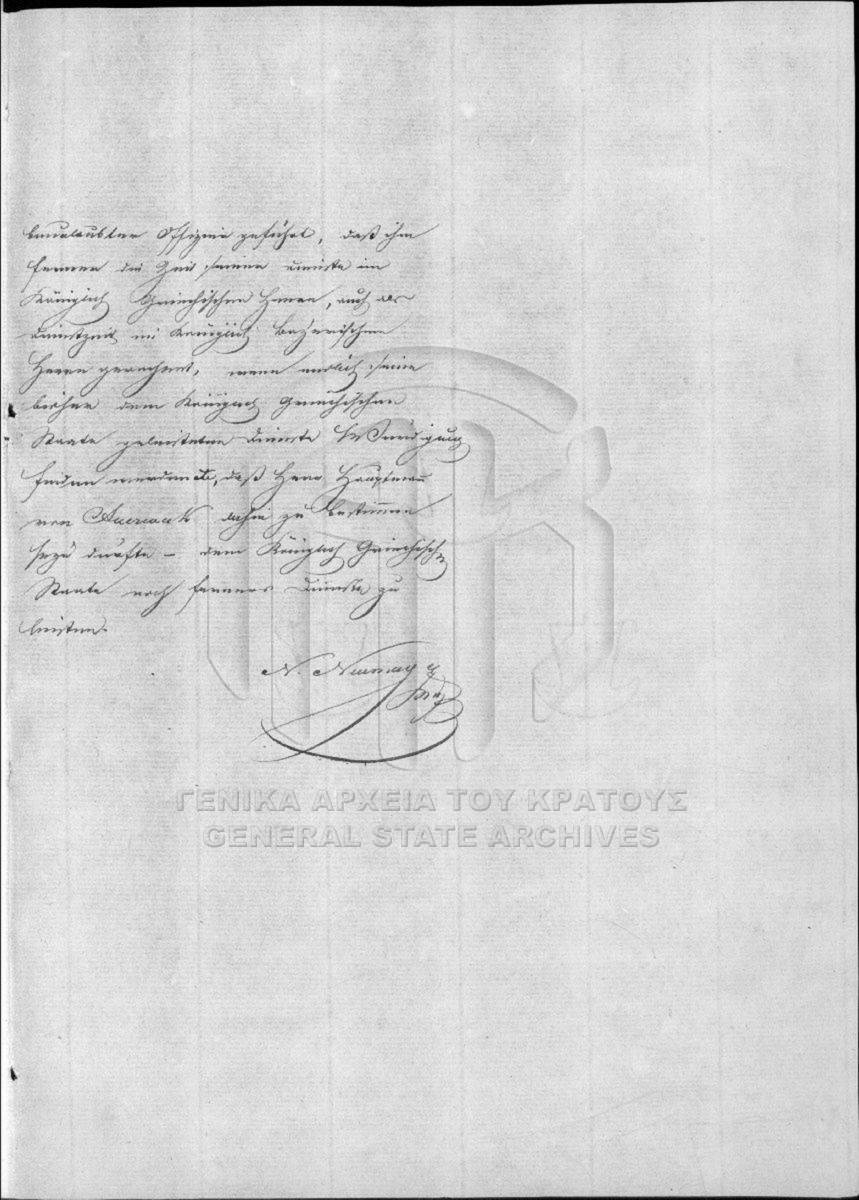 beurlaubter Offizier geführt, daß ihm
ferner die Zeit seiner Dienste im
Königlich Griechischen Heere, auch als
Dienstzeit im Königlich Bayerischen
Heere gerechnet, wenn endlich seine
bisher dem Königlich Griechischen
Staate geleisteten Dienste
finden werden, daß Herr Hauptmann
von dahin zu bestimmen
seyn dürfte – dem Königlich Griechischen
Staate noch ferners Dienste zu
leisten.
N. Neumayer
ΓΕΝΙΚΑ ΑΡΧΕΙΑ ΤΟΥ ΚΡΑΤΟΥΣ
GENERAL STATE ARCHIVES